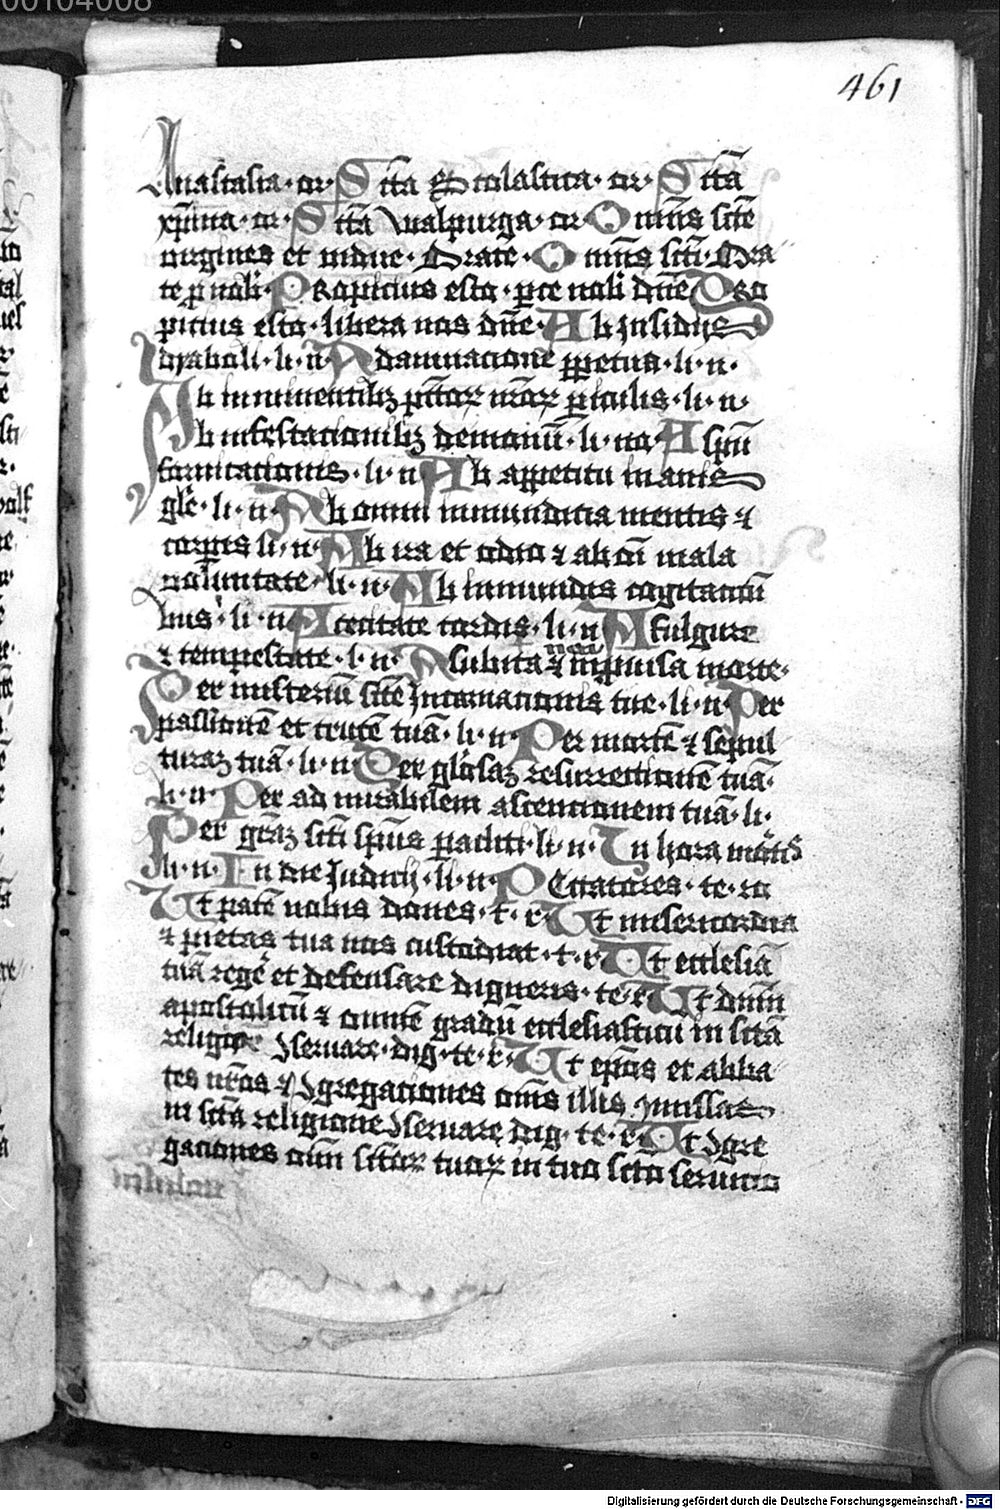 461
Anastasia · or · Scta Scolastica · or · Sctā
xp̄ina · or · Sctā walpurga · or Omēs sctē
virgines et vidue · Orate · Omēs scti · Ora
te p nob̄ · Propicius esto · parce nob̄ dn̄e Pro
picius esto · libera nos dn̄e · Ab Insidijs
dyaboli · li · n · A damnacione ppetua · li · n ·
Ab iminentibꝫ pctōꝝ nr̄oꝝ piculis · li · n ·
Ab infestacionibꝫ demonū · li · no · A spū
fornicacionis · li · n Ab appetitu inanis
glē · li · n · Ab omni inmundicia mentis ⁊
corporis li · n · Ab ira et odio ⁊ ab oī mala
voluntate · li · n · Ab inmundis cogitacioni
bus · li · n A cecitate cordis · li · n A fulgure
⁊ tempestate · l · n · A subita ⁊ inprouisa morte ·
Per misteriū sctē Incarnacionis tue · li · n · Per
passionē et crucē tuā · li · n · Per mortē ⁊ sepul
turaꝫ tuā · li · n · Per glosaꝫ resurrectionē tuā ·
li · n · Per ad mirabilem ascencionem tuā · li ·
Per graꝫ scti spūs pacliti · li · n · In hora mortis
li · n · In die Iudicij · li · n · Peccatores · te · ro
Ut pacē nobis dones · t · r · Ut misericordia
⁊ pietas tua nos custodiat · t · r Ut ecclesiā
tuā regē et defensare digneris · te · r Ut dn̄m
apostolicū ⁊ omnē gradū ecclesiasticū in sctā
religione ꝯseruare · dig · te · r · Ut ep̄os et abba
tes nr̄os ⁊ ꝯgregaciones om̄s illis ꝯmissas
in sctā religione ꝯseruare dig · te · r Ut ꝯgre
gaciones om̄ sctōꝝ tuoꝝ in tuo scto seruicio
00104008
Digitalisierung gefördert durch die Deutsche Forschungsgemeinschaft - DFG